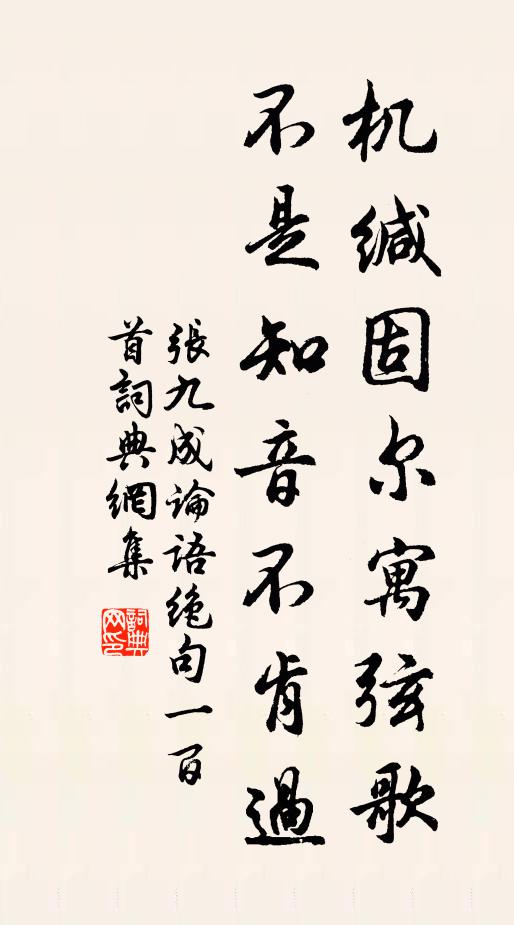 机缄固尔寓弦歌
不是知音不肯過
張九成論語绝句一百
首詞典網集
詞典网印